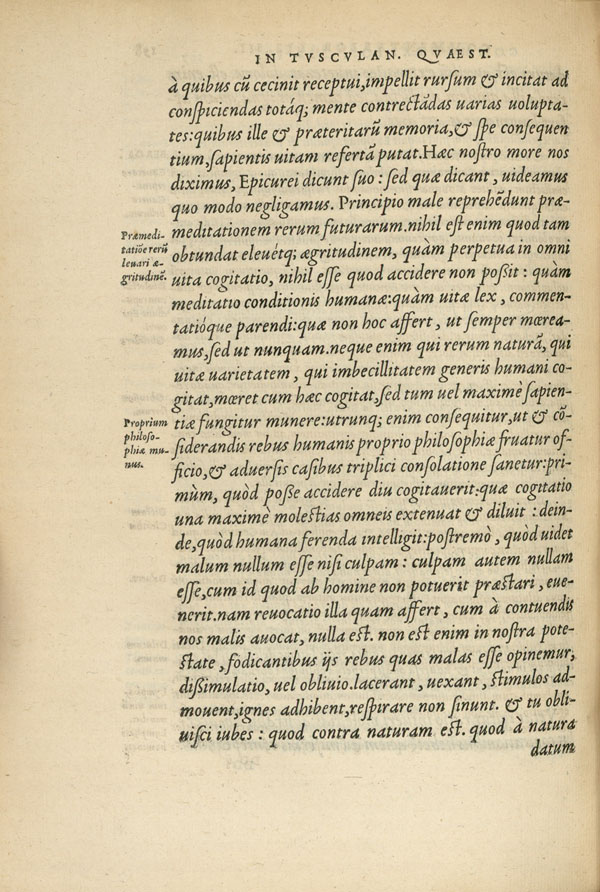 IN TVSCVLAN. QVAEST.
à quibus cũ cecinit receptui,impellit rursum & incitat ad
conspiciendas totáq; mente contrectãdas uarias uolupta-
tes:quibus ille & præteritarũ memoria,& spe consequen
tium,sapientis uitam refertã putat.Hæc nostro more nos
diximus, Epicurei dicunt suo : sed quæ dicant , uideamus
quo modo negligamus. Principio male reprehẽdunt præ-
meditationem rerum futurarum.nihil est enim quod tam
obtundat eleuétq; ægritudinem, quàm perpetua in omni
uita cogitatio, nihil esse quod accidere non possit : quàm
meditatio conditionis humanæ:quàm uitæ lex , commen-
tatióque parendi:quæ non hoc affert, ut semper mœrea-
mus,sed ut nunquam.neque enim qui rerum naturã, qui
uitæ uarietatem , qui imbecillitatem generis humani co-
gitat,mœret cum hæc cogitat,sed tum uel maximè sapien-
tiæ fungitur munere:utrunq; enim consequitur,ut & cõ-
siderandis rebus humanis proprio philosophiæ fruatur of-
ficio,& aduersis casibus triplici consolatione sanetur:pri-
mùm, quòd posse accidere diu cogitauerit:quæ cogitatio
una maximè molestias omneis extenuat & diluit : dein-
de,quòd humana ferenda intelligit:postremò , quòd uidet
malum nullum esse nisi culpam : culpam autem nullam
esse,cum id quod ab homine non potuerit præstari , eue-
nerit.nam reuocatio illa quam affert , cum à contuendis
nos malis auocat, nulla est. non est enim in nostra pote-
state , fodicantibus ijs rebus quas malas esse opinemur,
dissimulatio, uel obliuio.lacerant , uexant , stimulos ad-
mouent,ignes adhibent,respirare non sinunt. & tu obli-
uisci iubes : quod contra naturam est. quod à natura
datum
Præmedi-
tatiõe rerũ
leuari æ-
gritudinẽ.
Proprium
philoso-
phiæ mu-
nus.